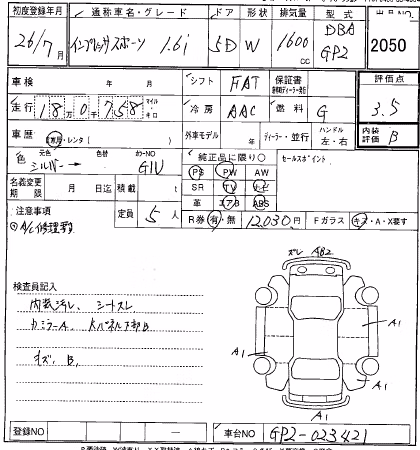 初度登録年月 通称車名・グレード ドア 形状 排気量 型式 出品NO
26/7月 インプレッサスポーツ 1.6i 5D W 1600cc DBA GP2 2050
車検 年 月 シフト FAT 保証書 評価点
走行 18万0千758 マイル・キロ 冷房 AAC 燃料 G 3.5
車歴 自家用・レンタ( ) 外車モデル 年 ディーラー・並行 ハンドル 左・右 内装評価 B
色 シルバー 色替 カラーNO G1U 純正品に限り○ セールスポイント
PS PW AW
名義変更期限 月 日迄 積載 t SR TV ナビ
定員 5人 革 エアB ABS
注意事項 R券 有・無 12,030円 Fガラス キズ・A・X要す
A/C修理要
ズレ AB2
検査員記入
内装汚レ、シートスレ
カミラーA、
キズ、B、
A1
A1
A1
A1
登録NO 車台NO GP2-023421